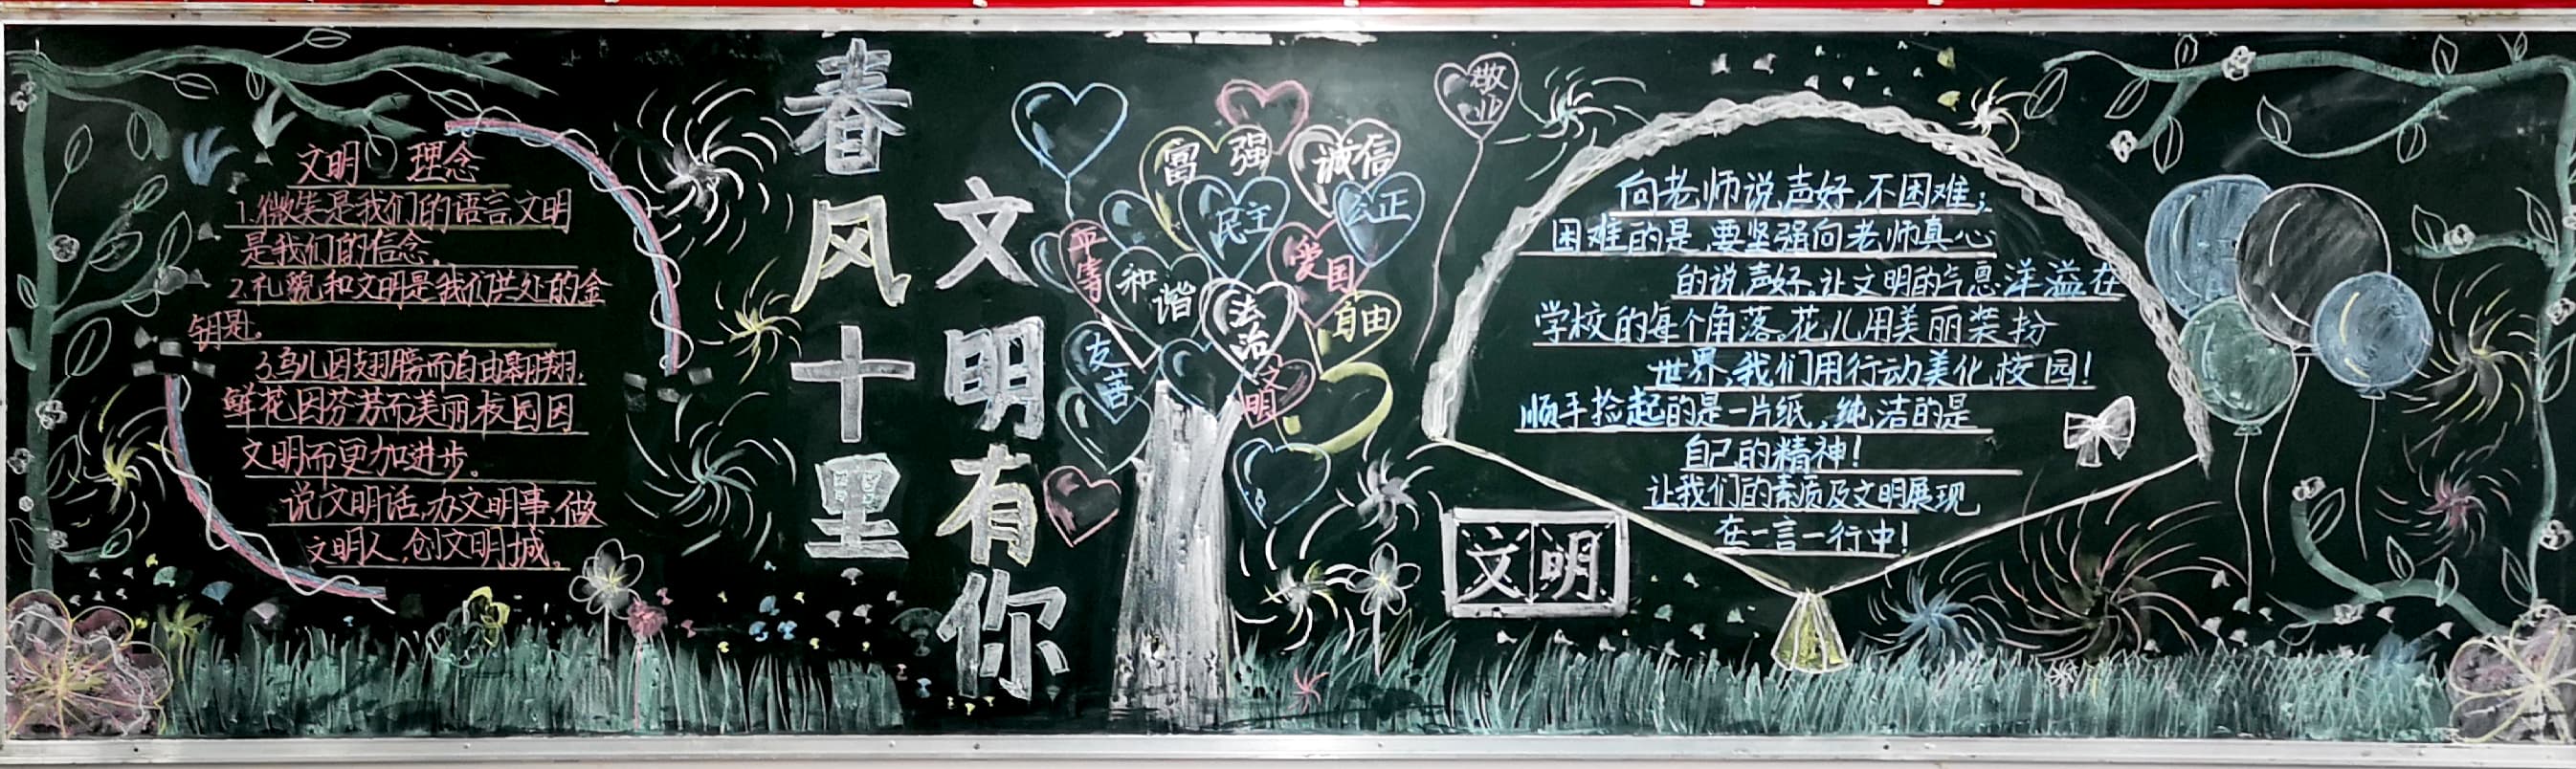 文明 理念
1.微笑是我们的语言,文明
是我们的信念。
2.礼貌和文明是我们共处的金
钥匙。
3.鸟儿因翅膀而自由翱翔,
鲜花因芬芳而美丽校园因
文明而更加进步。
说文明话,办文明事,做
文明人,创文明城。
春风十里
文明有你
敬业
富强
诚信
民主
公正
平等
和谐
爱国
法治
自由
友善
文明
向老师说声好,不困难;
困难的是,要坚强向老师真心
的说声好。让文明的气息洋溢在
学校的每个角落。花儿用美丽装扮
世界,我们用行动美化校园!
顺手捡起的是一片纸,纯洁的是
自己的精神!
让我们的素质及文明展现
在一言一行中!
文明